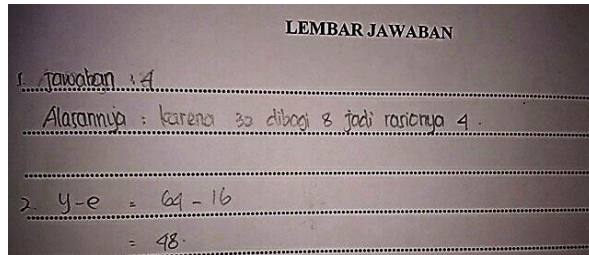 LEMBAR JAWABAN
1. Jawaban : 4
Alasannya : karena 32 dibagi 8 jadi rasionya 4.
2. y-e = 64 - 16
= 48.